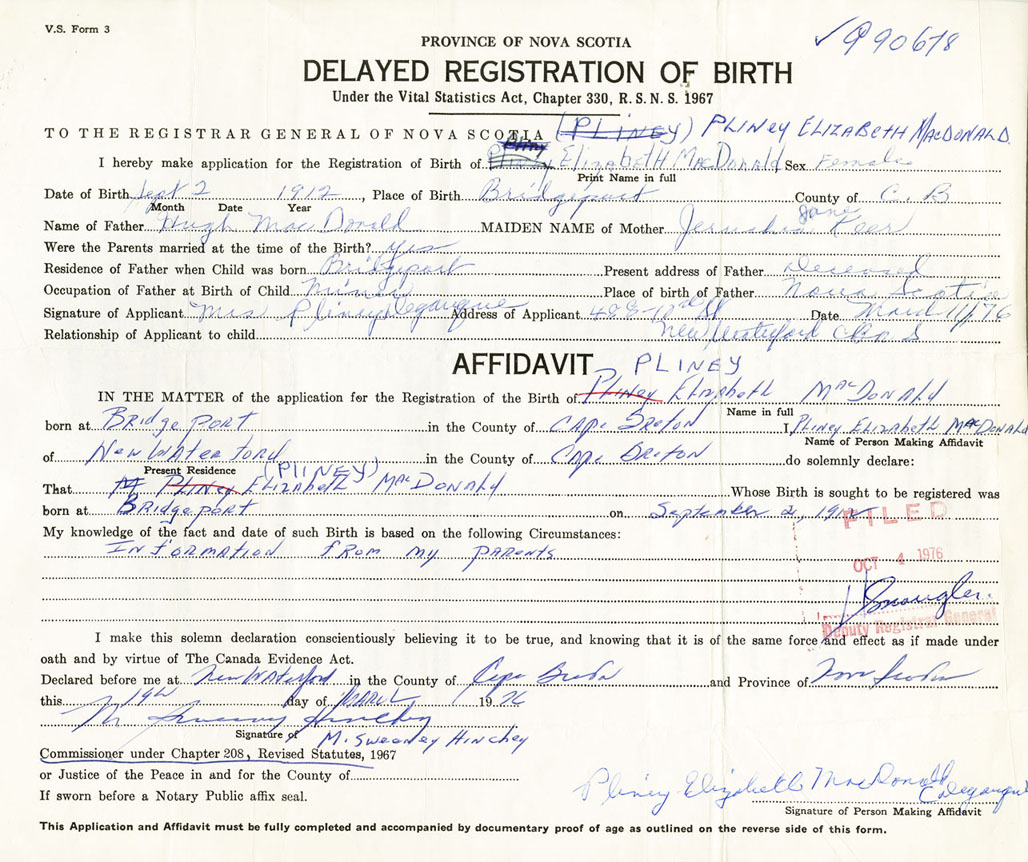 V.S. Form 3
✓ 990678
PROVINCE OF NOVA SCOTIA
DELAYED REGISTRATION OF BIRTH
Under the Vital Statistics Act, Chapter 330, R. S. N. S. 1967
TO THE REGISTRAR GENERAL OF NOVA SCOTIA (PLINEY) PLINEY ELIZABETH MACDONALD.
I hereby make application for the Registration of Birth of Pliney Elizabeth MacDonald Sex Female
Print Name in full
Date of Birth Sept 2 1912, Place of Birth Bridgeport County of C. B
Month Date Year
Name of Father Hugh MacDonald MAIDEN NAME of Mother Jerusha Jane Kerr
Were the Parents married at the time of the Birth? yes
Residence of Father when Child was born Bridgeport Present address of Father Deceased
Occupation of Father at Birth of Child Miner Place of birth of Father Nova Scotia
Signature of Applicant Mrs Pliney Address of Applicant 488 St Date March 11/76
Relationship of Applicant to child New Waterford
AFFIDAVIT PLINEY
IN THE MATTER of the application for the Registration of the Birth of Pliney Elizabeth MacDonald
Name in full
born at Bridgeport in the County of Cape Breton I, Pliney Elizabeth MacDonald
Name of Person Making Affidavit
of New Waterford in the County of Cape Breton do solemnly declare:
Present Residence (PLINEY)
That Pliney Elizabeth MacDonald Whose Birth is sought to be registered was
born at Bridgeport on September 2, 1912
FILED
My knowledge of the fact and date of such Birth is based on the following Circumstances:
Information from my parents
OCT 4 1976
Deputy Registrar General
I make this solemn declaration conscientiously believing it to be true, and knowing that it is of the same force and effect as if made under
oath and by virtue of The Canada Evidence Act.
Declared before me at New Waterford in the County of Cape Breton and Province of Nova Scotia
this 19th day of March 1976
M Sweeney Hinchey
Signature of M. Sweeney Hinchey
Commissioner under Chapter 208, Revised Statutes, 1967
or Justice of the Peace in and for the County of
If sworn before a Notary Public affix seal.
Pliney Elizabeth MacDonald
Signature of Person Making Affidavit
This Application and Affidavit must be fully completed and accompanied by documentary proof of age as outlined on the reverse side of this form.